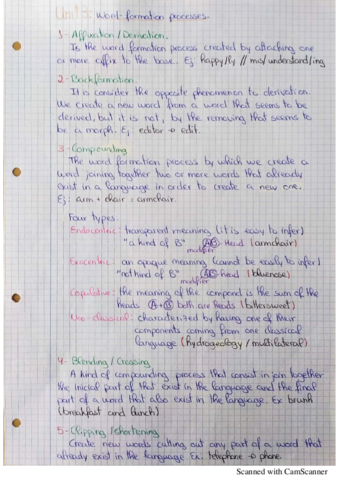 Unit 3 Word-formation processes.
1- Affixation / Derivation.
Is the word formation process created by attaching one
or more affix to the base. Ej happy/ly // mis/understand/ing
2- Backformation.
It is consider the opposite phenomenon to derivation.
We create a new word from a word that seems to be
derived, but it is not, by the removing that seems to
be a morph. Ej: editor → edit.
3- Compounding
The word formation process by which we create a
word joining together two or more words that already
exist in a language in order to create a new one.
Ej: arm + chair : armchair
Four types.
Endocentric: transparent meaning (it is easy to infer)
"a kind of B" A B Head (armchair)
modifier
Exocentric: an opaque meaning (cannot be easily to infer)
"not kind of B" A B head (bluenose)
modifier
Copulative: the meaning of the compond is the sum of the
heads A + B both are heads (bittersweet)
Neo-classical: characterized by having one of their
components coming from one classical
language (hydrogeology / multilateral)
4- Blending / Crossing
A kind of compounding process that consist in join together
the inicial part of that exist in the language and the final
part of a word that also exist in the language. Ex brunh
(breakfast and lunch)
5- Clipping / shortening
Create new words cutting out any part of a word that
already exist in the language Ex. telephone → phone.
Scanned with CamScanner